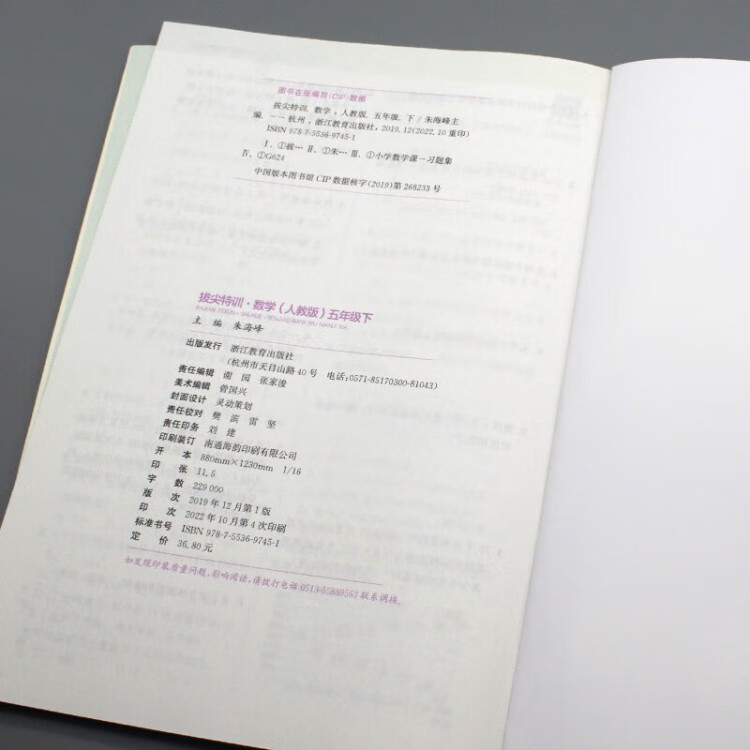 图书在版编目(CIP)数据
拔尖特训. 数学 : 人教版. 五年级. 下 / 朱海峰主
编. -- 杭州 : 浙江教育出版社, 2019.12(2022.10重印)
ISBN 978-7-5536-9745-1
Ⅰ. ①拔… Ⅱ. ①朱… Ⅲ. ①小学数学课-习题集
Ⅳ. ①G624
中国版本图书馆CIP数据核字(2019)第268233号
拔尖特训·数学(人教版)五年级下
主 编 朱海峰
出版发行 浙江教育出版社
(杭州市天目山路40号 电话:0571-85170300-81043)
责任编辑 谢 园 张家浚
美术编辑 曾国兴
封面设计 灵动策划
责任校对 樊 滨 雷 坚
责任印务 刘 建
印刷装订 南通海韵印刷有限公司
开 本 880mm×1230mm 1/16
印 张 11.5
字 数 229 000
版 次 2019年12月第1版
印 次 2022年10月第4次印刷
标准书号 ISBN 978-7-5536-9745-1
定 价 36.80元
如发现印装质量问题,影响阅读,请拨打电话:联系调换。